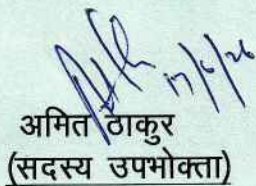 17/6/26
अमित ठाकुर
(सदस्य उपभोक्ता)